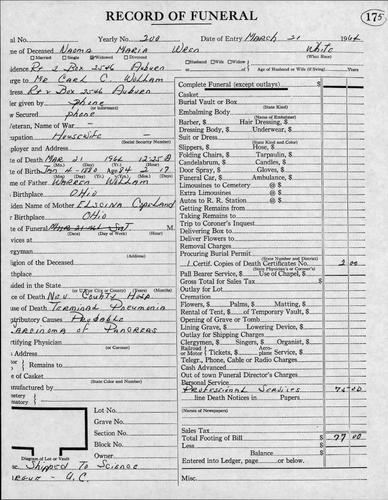 RECORD OF FUNERAL
175
al No. Yearly No. 200 Date of Entry MARCH 21 1964
me of Deceased NAOMA MARIA Wren White
Married Single Widowed Divorced Husband Wife Widow (What Race)
idence Rt 2 Box 2546 Auburn of Age of Husband or Wife (if living) Years
arge to Mr Carl C. Wollam
dress Rt 2 Box 2546 Auburn
er given by phone
(or informant)
w Secured phone
Veteran, Name of War —
upation Housewife
(Social Security Number)
ployer and Address
te of Death MAR 21 1964 12:25 A
(Mo.) (Day) (Yr.)
te of Birth JAN 4-1880 Age 84 2 17
(Mo.) (Day) (Yr.) (Yrs.) (Mos.) (Days)
me of Father WARREN Wollam
Birthplace OHIO
iden Name of Mother ELSCINA Copeland
r Birthplace OHIO
te of Funeral MAR 21 Sat M.
(Date) (Day of Week) (Hour)
vices at
rgyman
(Address)
igion of the Deceased
thplace
sided in the State
(or U.S., City or County) (Years) (Months)
ce of Death Nev. County Hosp
use of Death Terminal Pneumonia
ntributory Causes Probable
CARCINOMA of PANCREAS
tifying Physician
(or Coroner)
s Address
Remains to
e of Casket
(State Color and Number)
anufactured by
metery
matory
Lot No.
Grave No.
Section No.
Block No.
Diagram of Lot or Vault Owner
Shipped To Science
U.C.
Complete Funeral (except outlays) $
Casket
Burial Vault or Box
(State Kind)
Embalming Body
(Name of Embalmer)
Barber, $ Hair Dressing, $
Dressing Body, $ Underwear, $
Suit or Dress
(State Kind and Color)
Slippers, $ Hose, $
Folding Chairs, $ Tarpaulin, $
Candelabrum, $ Candles, $
Door Spray, $ Gloves, $
Funeral Car, $ Ambulance, $
Limousines to Cemetery @ $
Extra Limousines @ $
Autos to R. R. Station @ $
Getting Remains from
Taking Remains to
Trip to Coroner's Inquest
Delivering Box to
Deliver Flowers to
Removal Charges
Procuring Burial Permit
(State Number and District)
1 Certif. Copies of Death Certificates No. 2 00
(State Physician's or Coroner's)
Pall Bearer Service, $ Use of Chapel, $
Gross Total for Sales Tax $
Outlay for Lot
Cremation
Flowers, $ Palms, $ Matting, $
Rental of Tent, $ of Temporary Vault, $
Opening of Grave or Tomb
Lining Grave, $ Lowering Device, $
Outlay for Shipping Charges
Clergymen, $ Singers, $ Organist, $
Railroad or Motor Tickets, $ Aero-plane Service, $
Telegr., Phone, Cable or Radio Charges
Cash Advanced
Out of town Funeral Director's Charges
Personal Service
Professional Services 75 00
line Death Notices in Papers
(Names of Newspapers)
Sales Tax
Total Footing of Bill $ 77 00
Less $
Balance $
Entered into Ledger, page or below.
Misc.